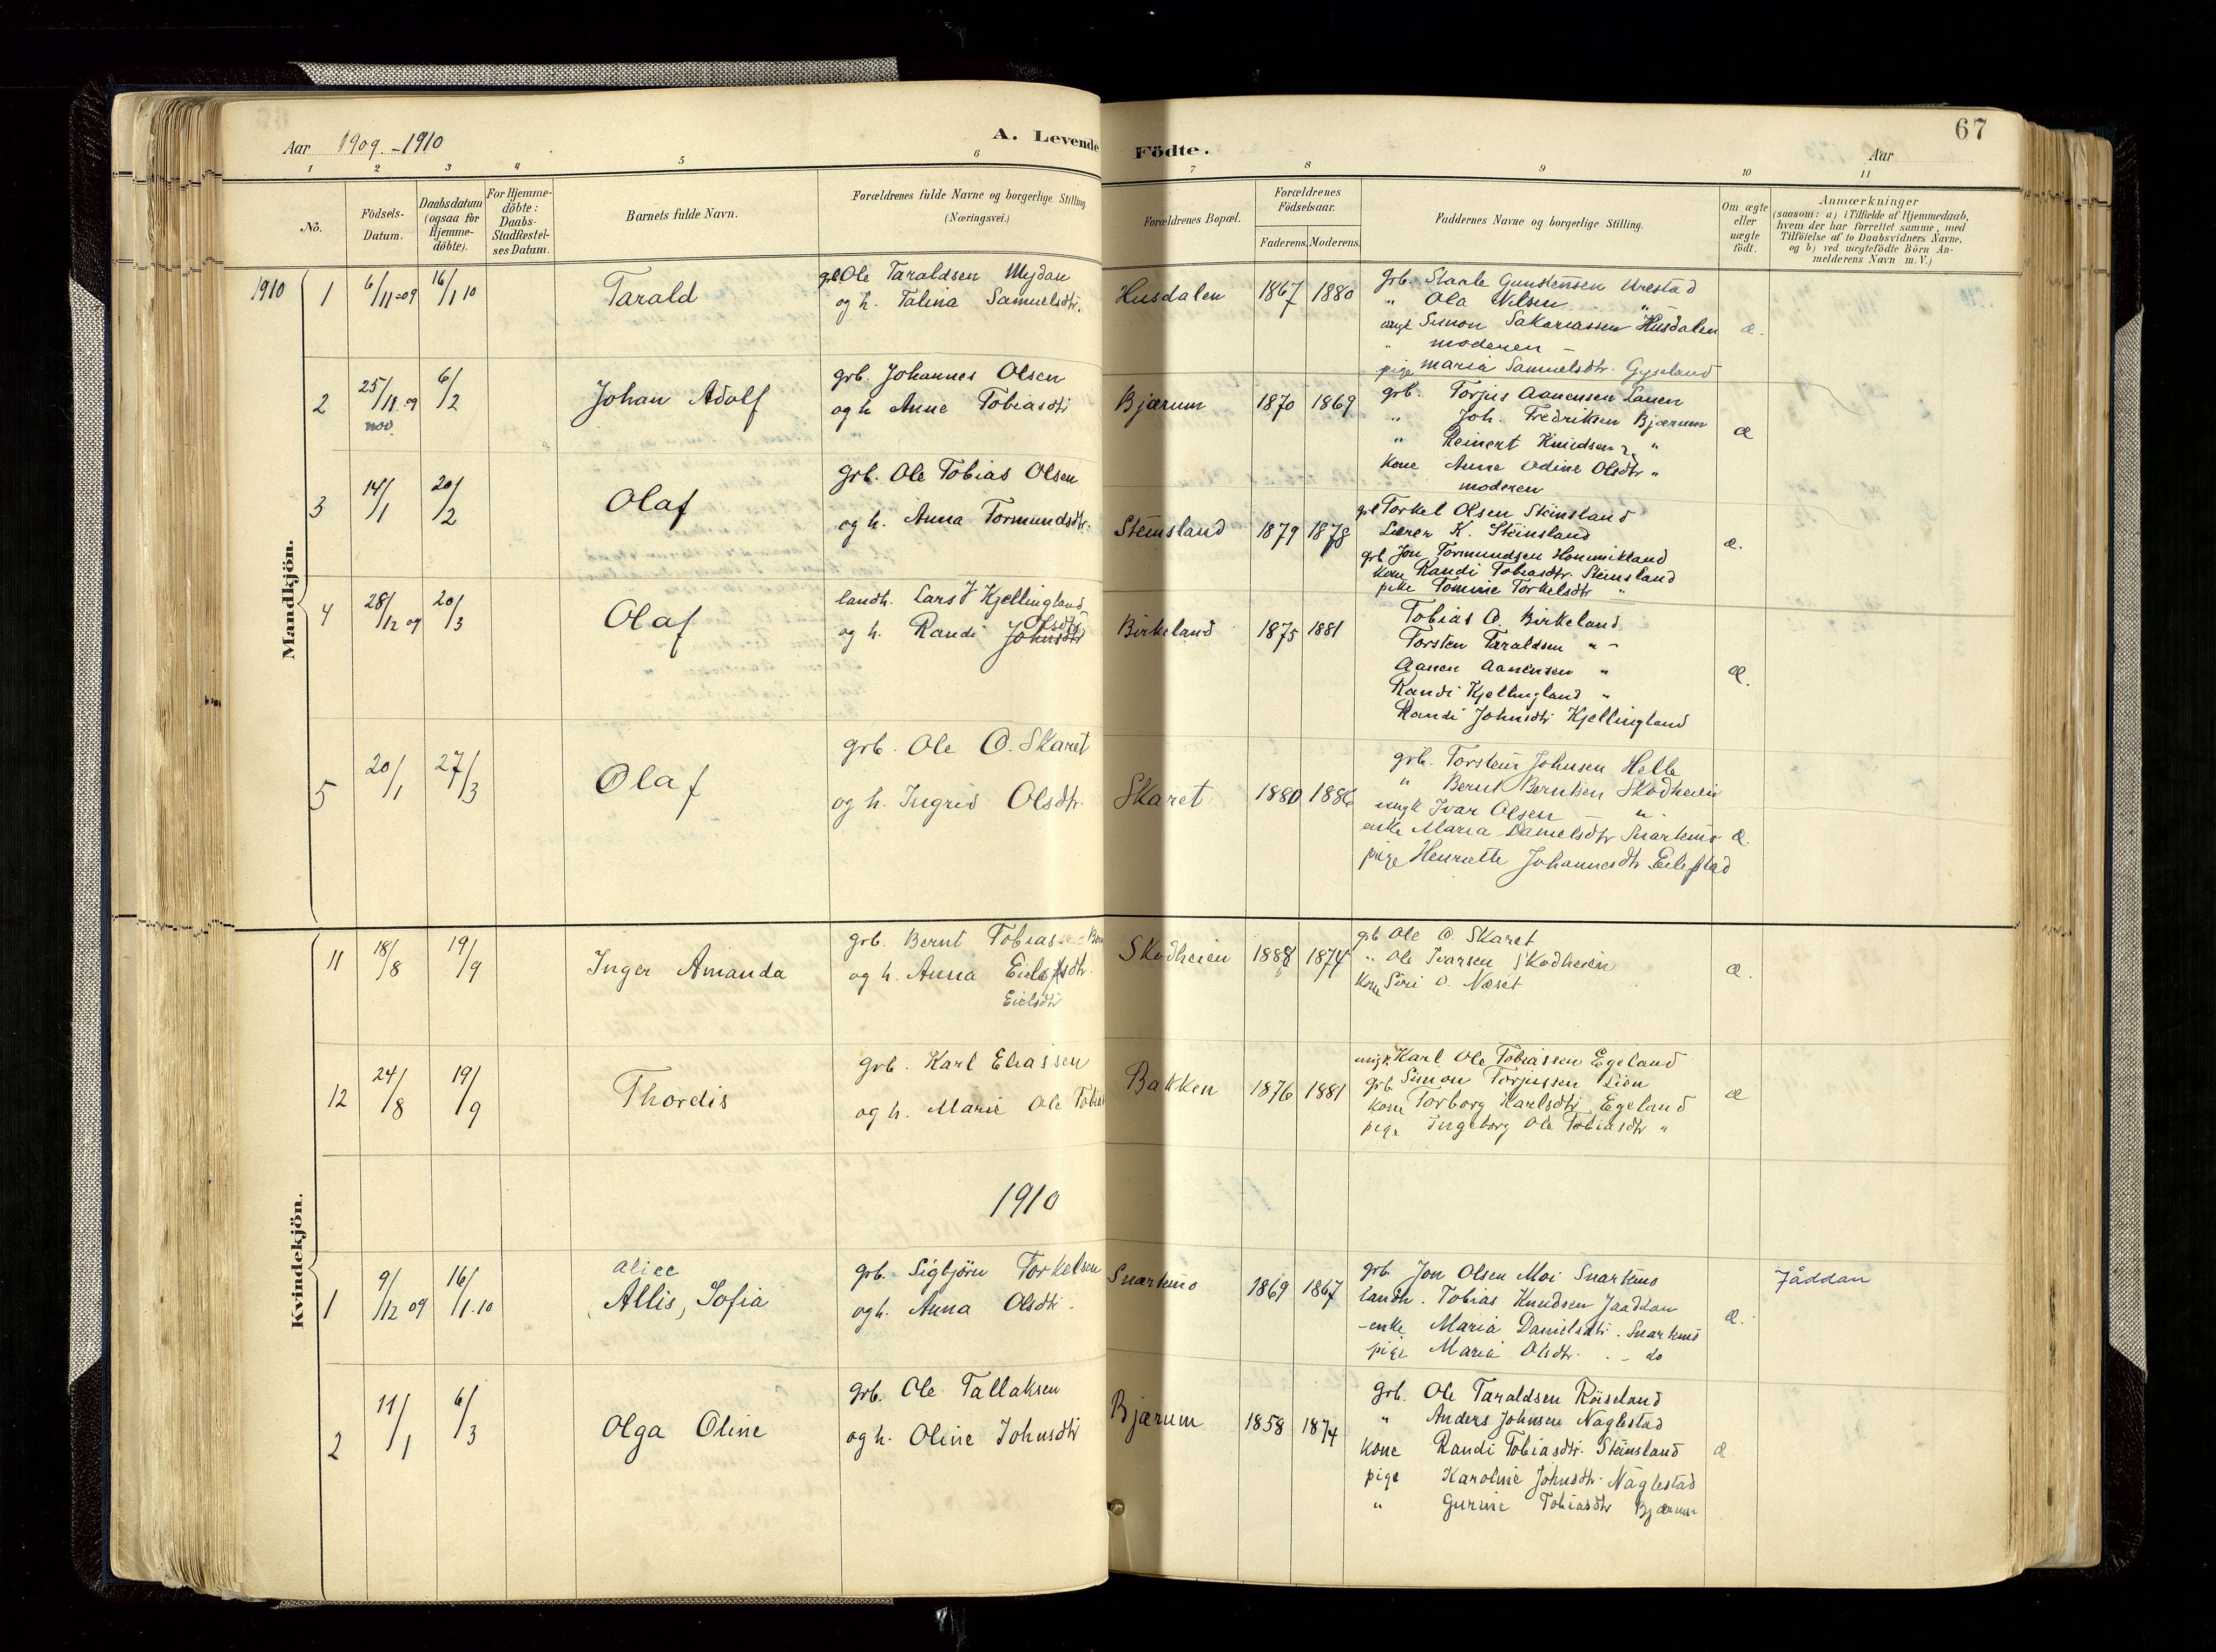 67
Aar 1909.-1910
A. Levende Födte.
Aar
1 2 3 4 5 6 7 8 9 10 11
No.
Födsels-Datum.
Daabsdatum (ogsaa for Hjemme-döbte).
For Hjemme-döbte: Daabs-Stadfæstel-ses Datum.
Barnets fulde Navn.
Forældrenes fulde Navne og borgerlige Stilling (Næringsvei.)
Forældrenes Bopæl.
Forældrenes Födselsaar.
Faderens. Moderens.
Faddernes Navne og borgerlige Stilling.
Om ægte eller uægte födt.
Anmærkninger
(saasom: a) i Tilfælde af Hjemmedaab,
hvem der har forrettet samme, med
Tilföielse af to Daabsvidners Navne,
og b) ved uægtefödte Börn An-
melderens Navn m. V.)
Mandkjön.
1910 1 6/11-09 16/1 10 Tarald
Ole Taraldsen Mydan
og h. Talina Samuelsdtr.
Husdalen 1867 1880
grb. Staale Gunstensen Urestad
" Ola Nilsen "
ungk Simon Sakariassen Husdalen æ.
" moderen –
pige Maria Samuelsdtr. Gyseland
2 25/11-09 6/2 Johan Adolf
nov.
grb. Johannes Olsen
og h Anne Tobiasdtr
Bjærum 1870 1869
grb. Torjus Aanensen Lauen
" Joh. Fredriksen Bjærum æ
" Reinert Knudsen "
kone Anne Odine Olsdtr "
moderen
3 14/1 20/2 Olaf
grb. Ole Tobias Olsen
og h. Anna Tormundsdtr.
Steinsland 1879 1878
Torkel Olsen Steinsland
Lærer K. Steinsland æ.
grb Jon Tormundsen Hommikland
kone Randi Tobiasdtr. Steinsland
pike Tomine Torkelsdtr "
4 28/12 09 20/3 Olaf
landh. Lars J Kjellingland
Olsdtr
og h. Randi Johnsdtr
Birkeland 1875 1881
Tobias O. Birkeland
Torsten Taraldsen "
Aanen Aanensen " æ.
Randi Kjellingland "
Randi Johnsdtr Kjellingland
5 20/1 27/3 Olaf
grb. Ole O. Skaret
og h. Ingrid Olsdtr.
Skaret 1880 1886
grb. Torstein Johnsen Helle
" Bernt Berntsen Skodheien
ungk Ivar Olsen "
enke Maria Danielsdtr Snartemo æ.
pige Henriette Johannesdtr Eilefstad
Kvindekjön.
11 18/8 19/9 Inger Amanda
grb. Bernt Tobias
og h. Anna Eilefsdtr.
Eielsdtr
Skodheien 1888 1874
grb Ole O. Skaret
" Ole Ivarsen Skodheien æ.
kone Siri O. Næset
12 24/8 19/9 Thordis
grb. Karl Eliassen
og h. Marie Ole Tobias
Bakken 1876 1881
ungk Karl Ole Tobiassen Egeland
grb. Simon Torjussen Lien æ
kone Torborg Karlsdtr Egeland
pige Ingeborg Ole Tobiasdtr "
1910
1 9/12 09 16/1.10
Alice
Allis, Sofia
grb. Sigbjörn Torkelsen
og h. Anna Olsdtr.
Snartemo 1869 1867
grb. Jon Olsen Moi Snartemo Jåddan
landh. Tobias Knudsen Jaaddan æ.
enke Maria Danielsdtr. Snartemo
pige Maria Olsdtr. – do
2 11/1 6/3 Olga Oline
grb. Ole Tallaksen
og h. Oline Johnsdtr
Bjærum 1858 1874
Grb. Ole Taraldsen Röiseland
" Anders Johnsen Naglestad
kone Randi Tobiasdtr. Steinsland æ
pige Karoline Johnsdtr. Naglestad
" Gurine Tobiasdtr Bjærum